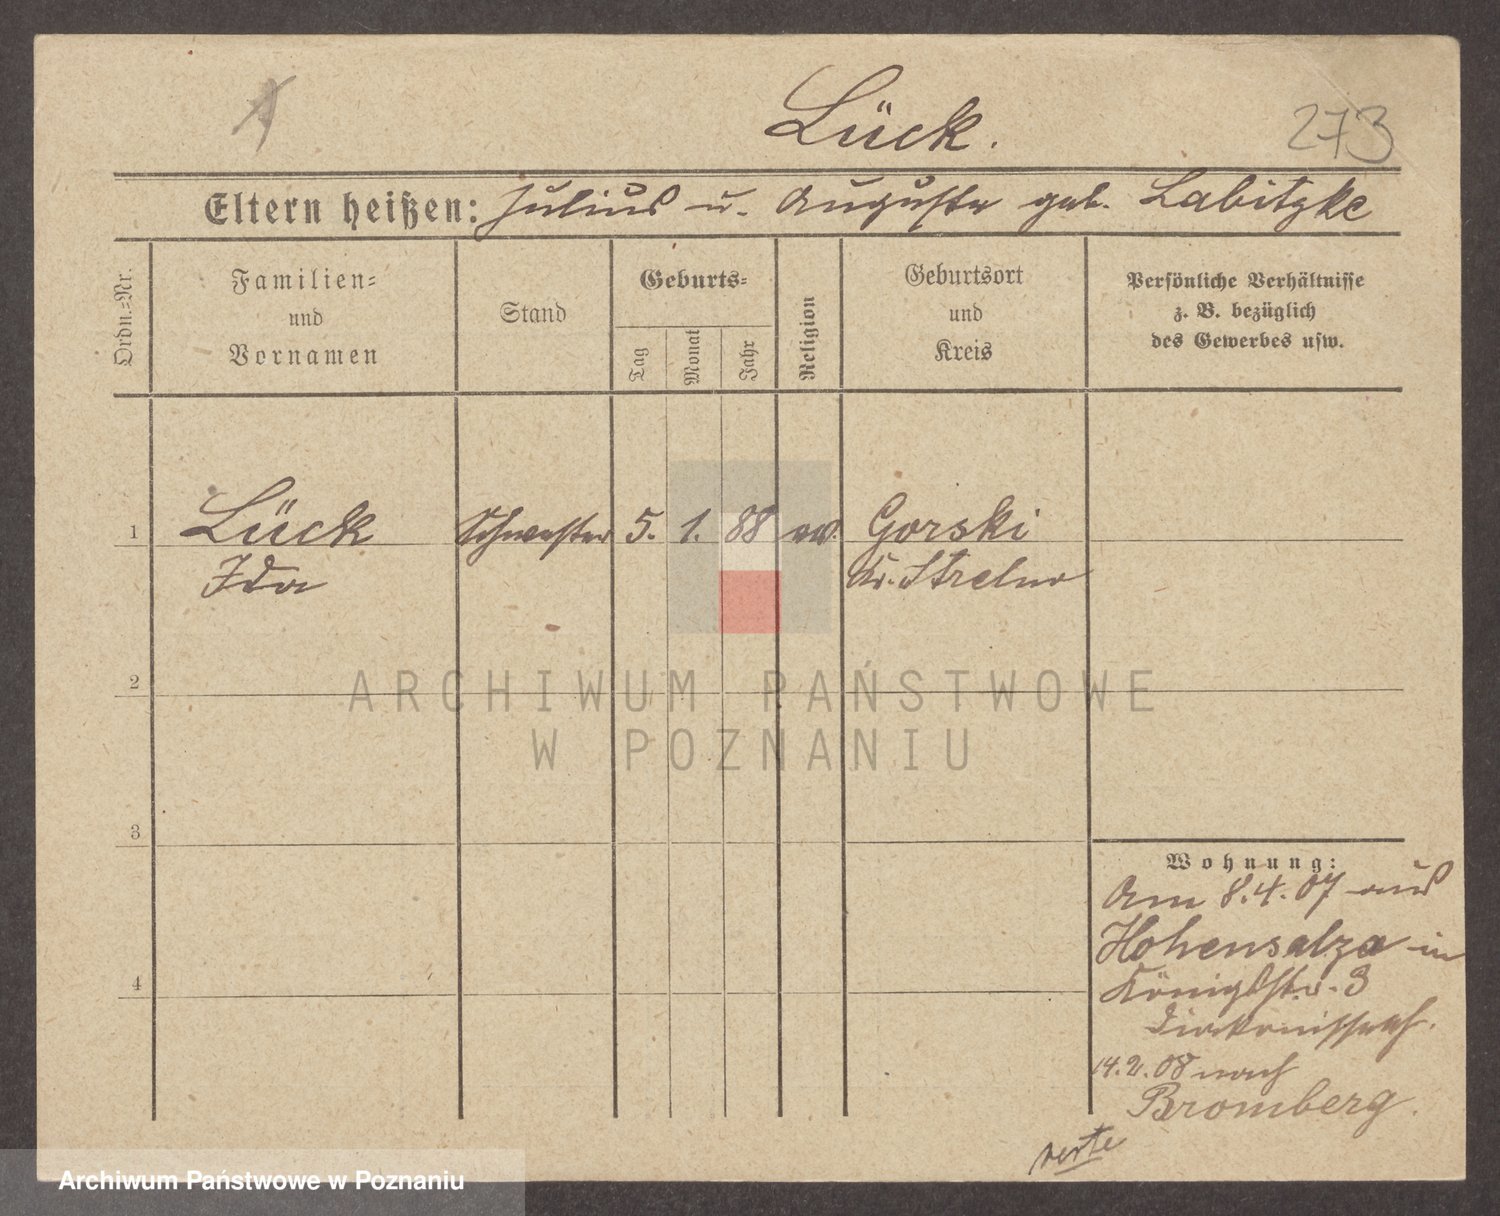 Lück.
273
Eltern heißen: Julius u. Auguste geb. Labitzke
Ordn.=Nr.
Familien=
und
Vornamen
Stand
Geburts=
Tag
Monat
Jahr
Religion
Geburtsort
und
Kreis
Persönliche Verhältnisse
z. B. bezüglich
des Gewerbes usw.
1 Lück Schwester 5. 1. 88 ev. Gorski
Ida Kr. Strelno
ARCHIWUM PAŃSTWOWE
W POZNANIU
2
3
4
Wohnung:
Am 8.4.07 aus
Hohensalza in
Königstr. 3
14.2.08 nach
Bromberg.
Archiwum Państwowe w Poznaniu